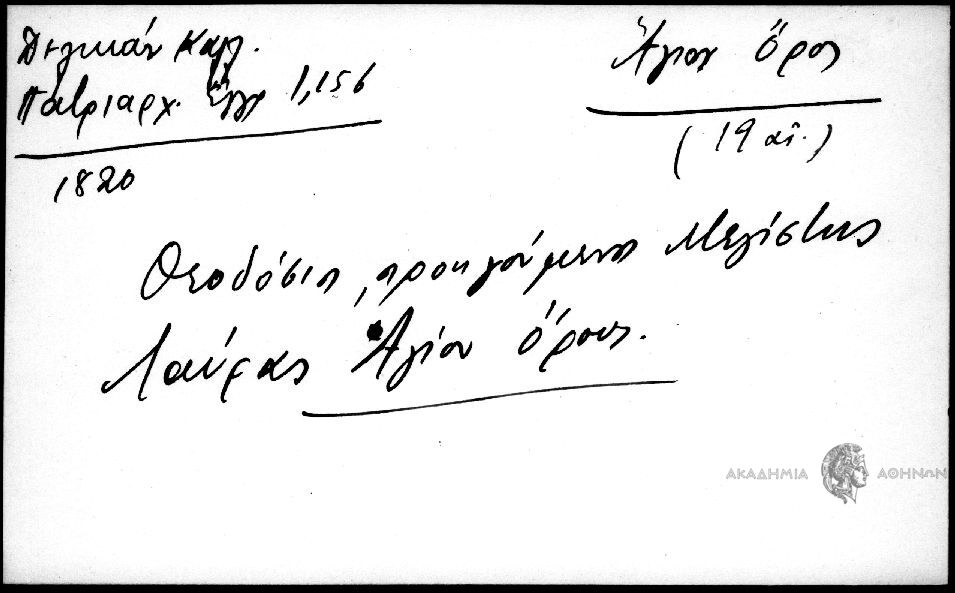 Δελικάν Καλ.
Πατριαρχ. Ἔγγρ 1,156
1820
Ἅγιον Ὄρος
(19 αἰ.)
Θεοδόσιος, προηγούμενος Μεγίστης
Λαύρας Ἁγίου Ὄρους.
ΑΚΑΔΗΜΙΑ ΑΘΗΝΩΝ